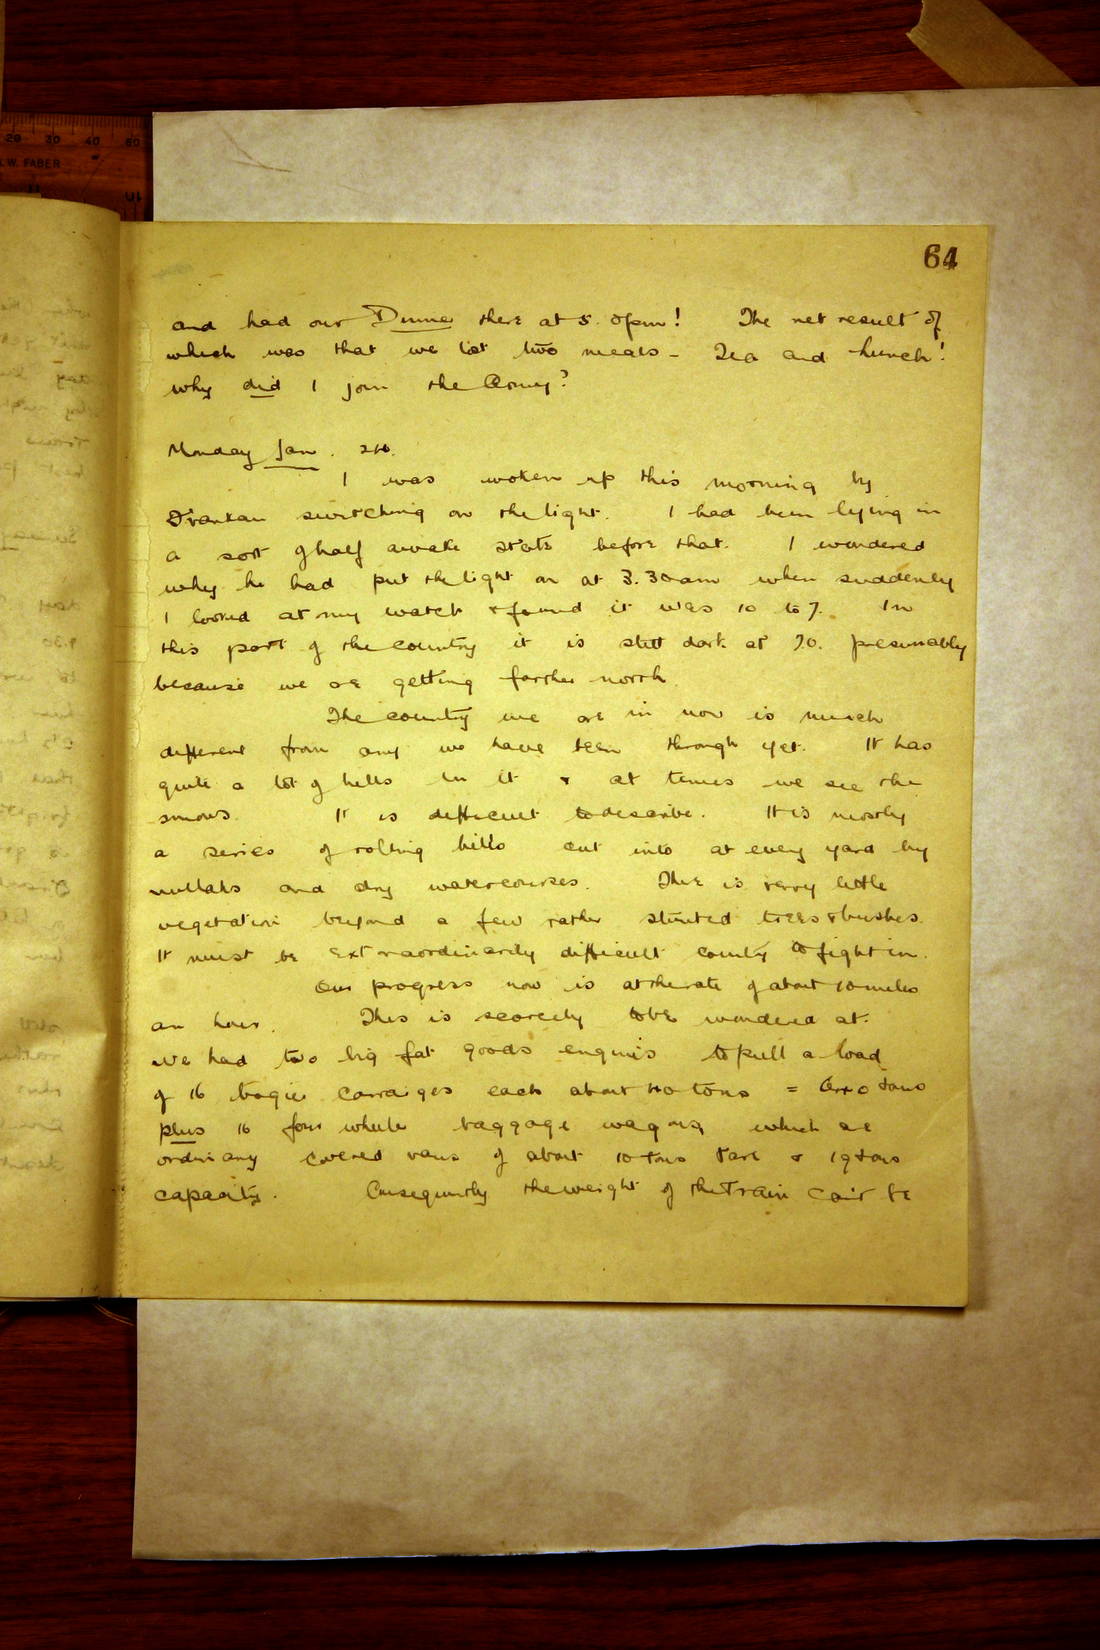 20 30 40 60
W. FABER
64
and had our Dinner there at 5.0pm! The net result of
which was that we lost two meals - Tea and Lunch!
why did I join the Army?
Monday Jan.
I was woken up this morning by
switching on the light. I had been lying in
a sort of half awake state before that. I wondered
why he had put the light on at 3.30am when suddenly
I looked at my watch & found it was 10 to 7. In
this part of the country it is still dark at 7.0. presumably
because we are getting farther north.
The country we are in now is much
different from any we have been through yet. It has
quite a lot of hills in it & at times we see the
snows. It is difficult to describe. It is mostly
a series of rolling hills cut into at every yard by
nullahs and dry watercourses. There is very little
vegetation beyond a few rather stunted trees & bushes.
It must be extraordinarily difficult country to fight in.
Our progress now is at the rate of about 10 miles
an hour. This is scarcely to be wondered at.
We had two big fat goods engines to pull a load
of 16 bogie carraiges each about 40 tons = 640 tons
plus 16 four wheeler baggage wagons which are
ordinary covered vans of about 10 tons tare & 19 tons
capacity. Consequently the weight of the train can't be